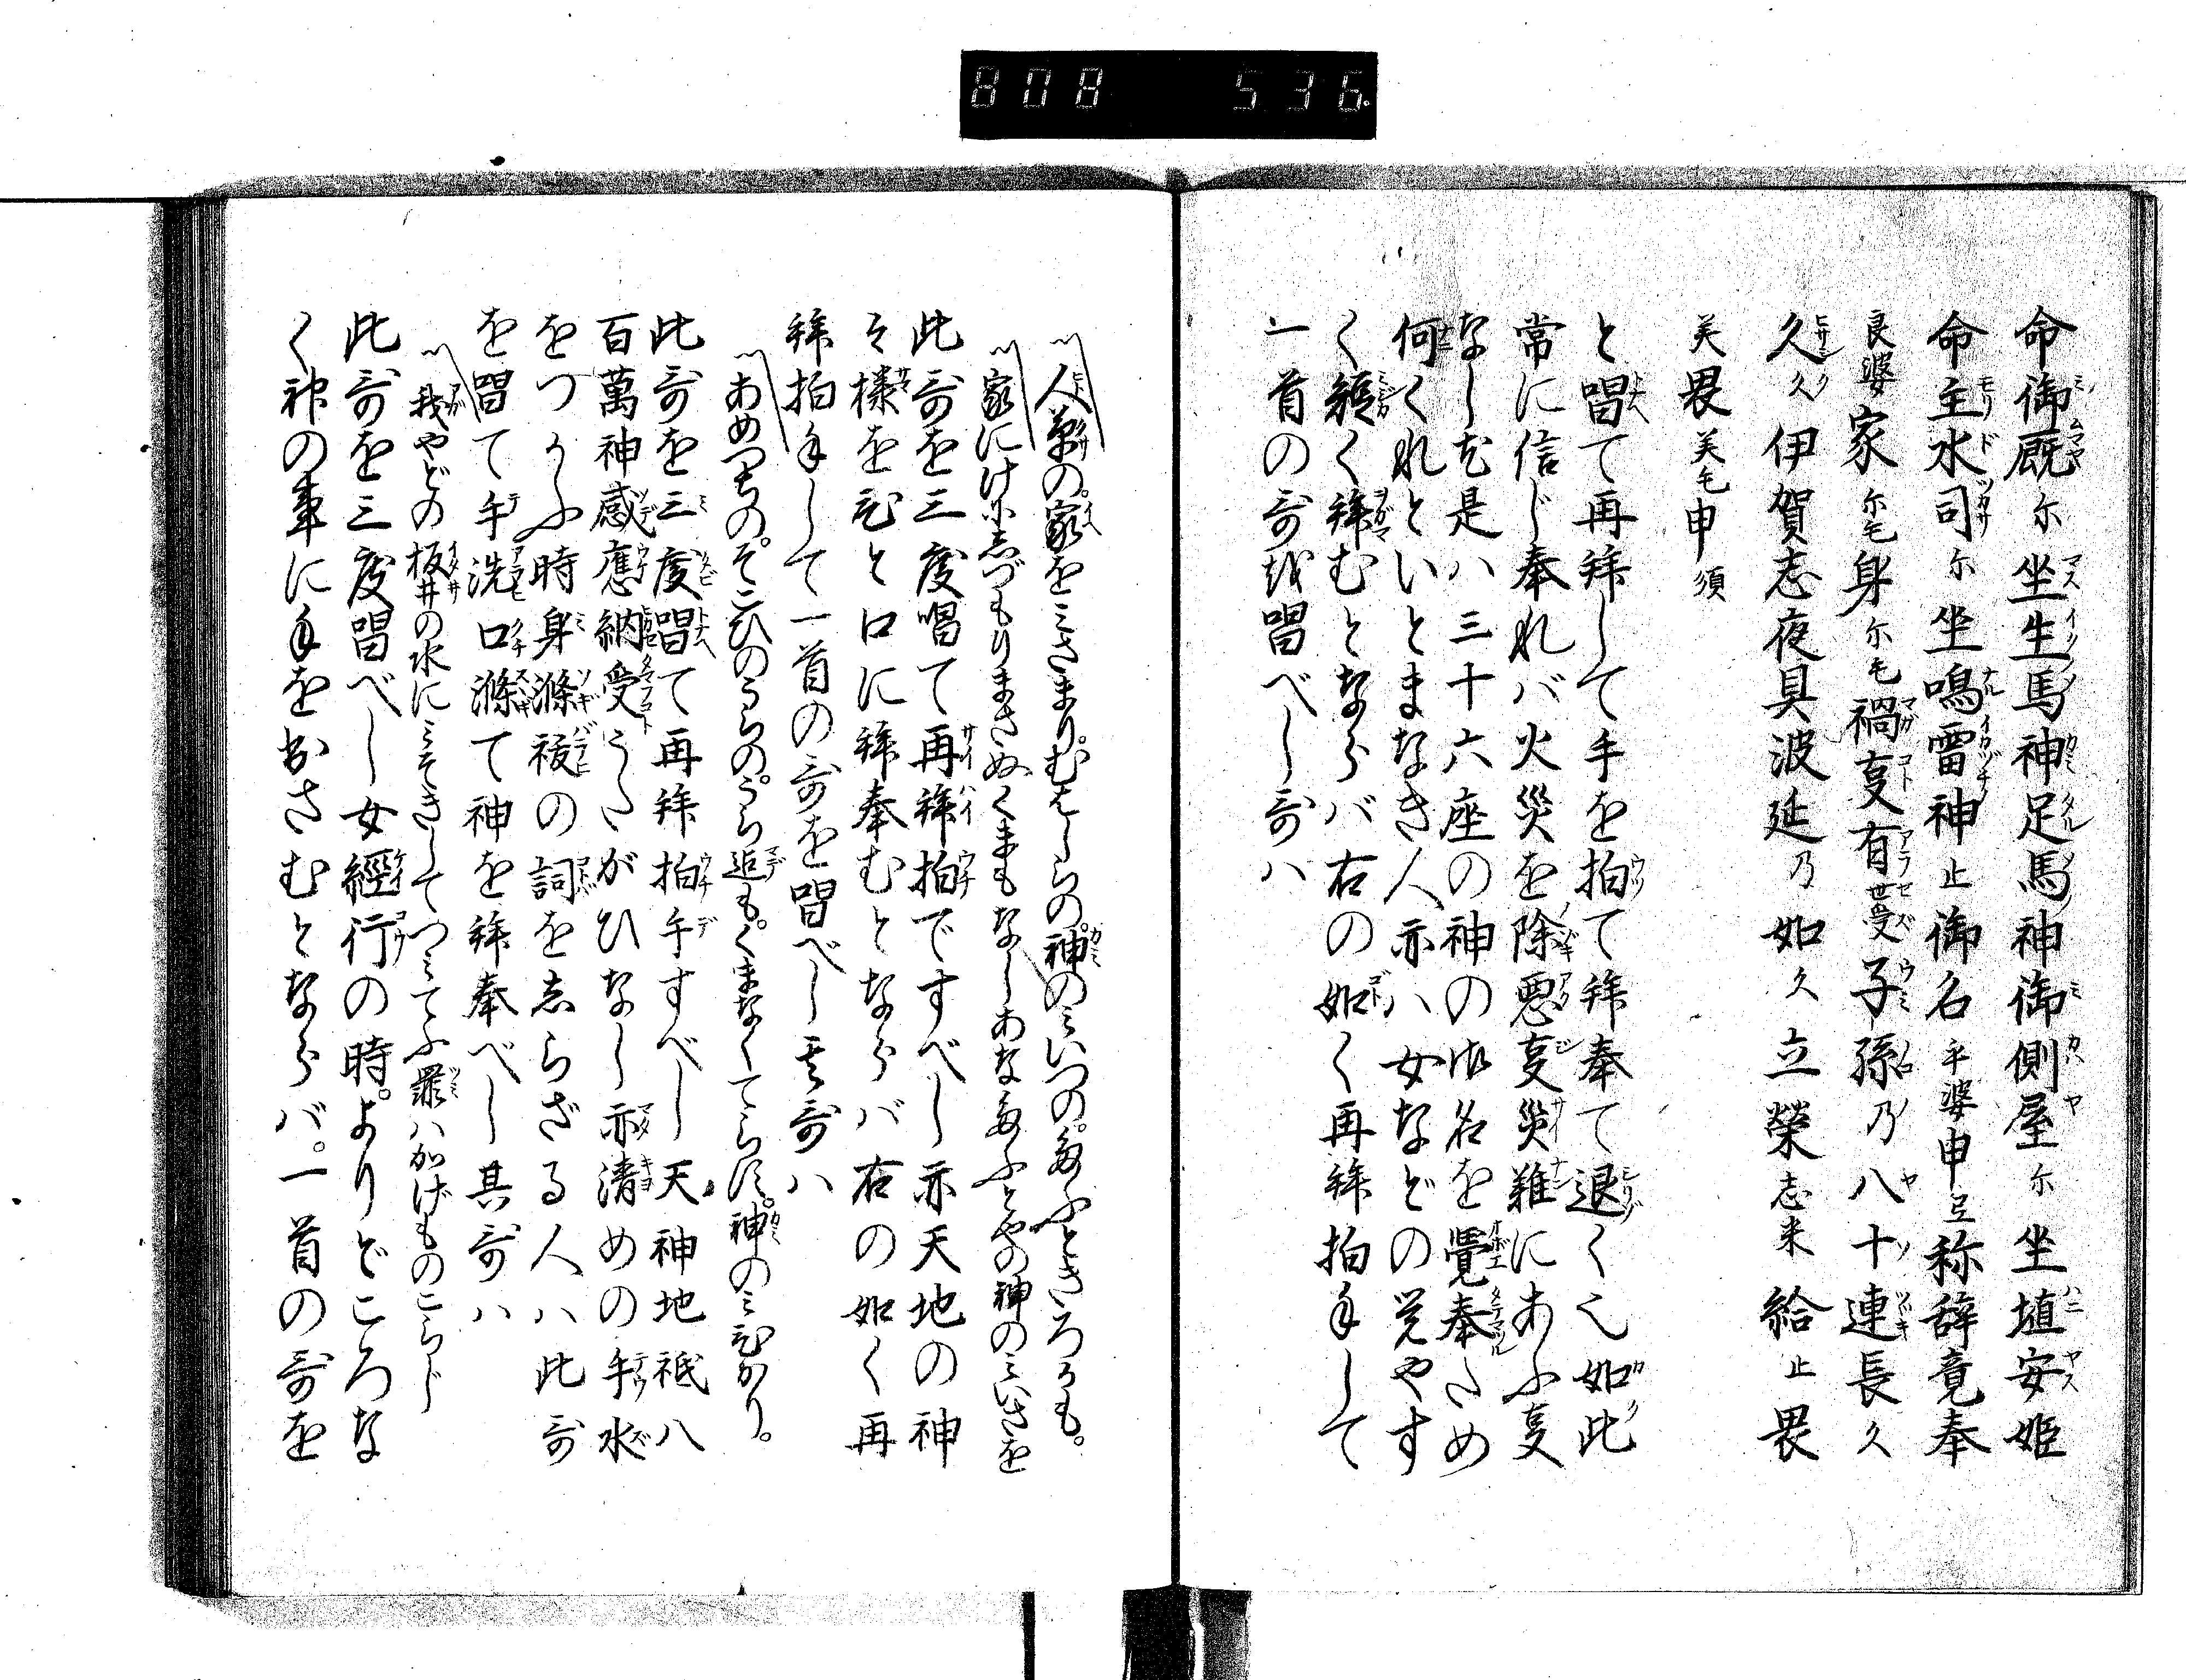 808 536
命御厩尓坐生馬神足馬神御側屋尓坐埴安姫
命主水司尓坐鳴雷神止御名乎婆申弖称辞竟奉
良婆家尓毛身尓毛禍事有世受子孫乃八十連長久
久久伊賀志夜具波延乃如久立榮志米給止畏
美畏美毛申須
と唱て再拜して手を拍て拜奉て退くべし如此
常に信じ奉れバ火災を除悪事災難にあふ事
なし尤是ハ三十六座の神の御名を覺奉るため
何くれといとまなき人亦ハ女などの覚やす
く短く拜むとならバ右の如く再拜拍手して
一首の哥を唱べし哥ハ
人草の家をみさまりむはしらの神のみいつのたふときろかも
家にけふしづもりまさぬくまもなしあなたふとやの神のみいさを
此哥を三度唱て再拜拍ですべし亦天地の神
を様をひと口に拜奉むとならバ右の如く再
拜拍手して一首の哥を唱べし其哥ハ
あめつちのそこひのうらのうら迄もくまなくてらす神のみひかり
此哥を三度唱て再拜拍手すべし天神地祇八
百萬神感應納受うたがひなし亦清めの手水
をつかふ時身滌祓の詞を志らざる人ハ此哥
を唱て手洗口滌て神を拜奉べし其哥ハ
我やどの板井の水にみそぎしてつみてふ罪ハかげものこらじ
此哥を三度唱べし女經行の時よりどころな
く神の事に手をおさむとならバ一首の哥を